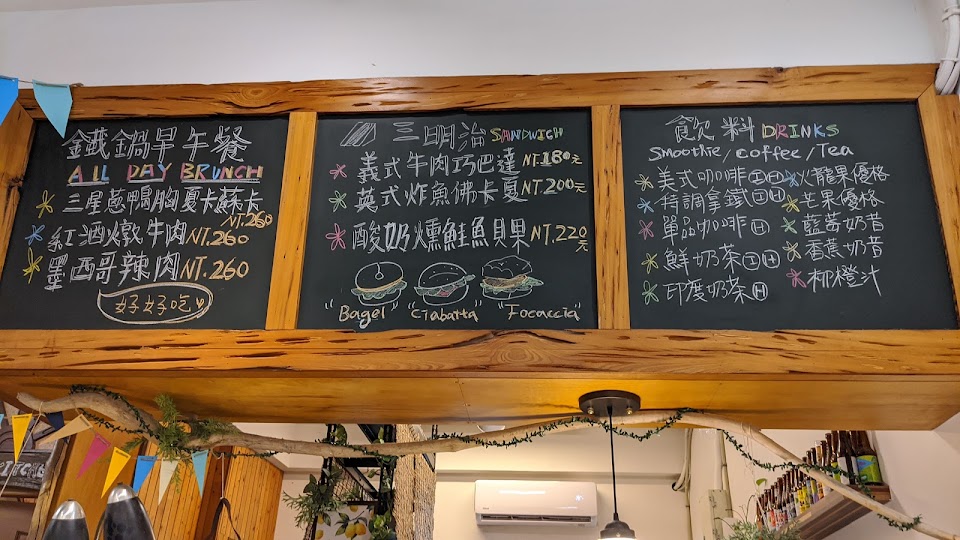 鐵鍋早午餐
ALL DAY BRUNCH
三星蔥鴨胸夏卡蘇卡 NT.260
紅酒燉牛肉 NT.260
墨西哥辣肉 NT.260
好好吃
三明治 SANDWICH
義式牛肉巧巴達 NT.180元
英式炸魚佛卡夏 NT.200元
酸奶燻鮭魚貝果 NT.220元
"Bagel" "Ciabatta" "Focaccia"
飲料 DRINKS
Smoothie/Coffee/Tea
美式咖啡ⒾⒽ
特調拿鐵ⒾⒽ
單品咖啡Ⓗ
鮮奶茶ⒾⒽ
印度奶茶Ⓗ
火龍果優格
芒果優格
藍莓奶昔
香蕉奶昔
柳橙汁